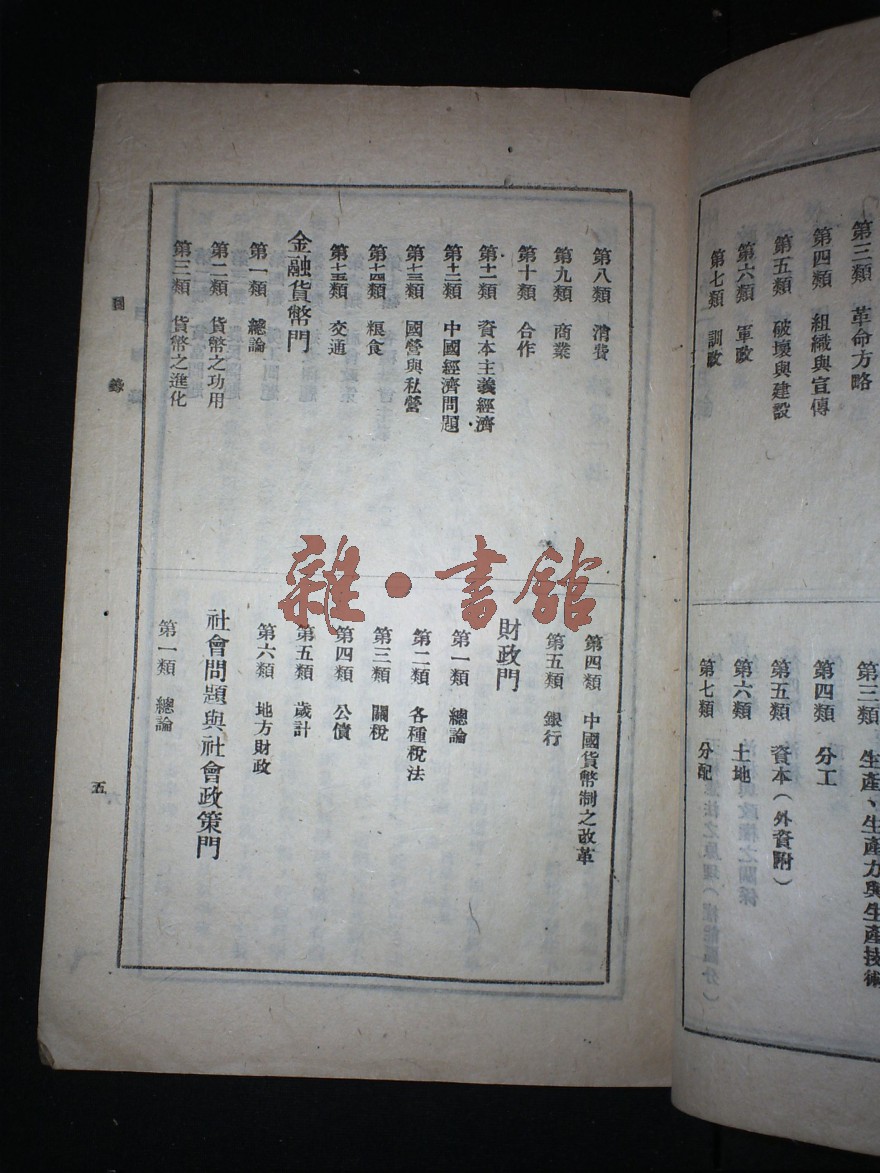 第三類　革命方略
第四類　組織與宣傳
第五類　破壞與建設
第六類　軍政
第七類　訓政
第三類　生產、生產力與生產技術
第四類　分工
第五類　資本（外資附）
第六類　土地
第七類　分配
第八類　消費
第九類　商業
第十類　合作
第十一類　資本主義經濟
第十二類　中國經濟問題
第十三類　國營與私營
第十四類　粮食
第十五類　交通
金融貨幣門
第一類　總論
第二類　貨幣之功用
第三類　貨幣之進化
第四類　中國貨幣制之改革
第五類　銀行
財政門
第一類　總論
第二類　各種稅法
第三類　關稅
第四類　公債
第五類　歲計
第六類　地方財政
社會問題與社會政策門
第一類　總論
目錄
五
雜·書館